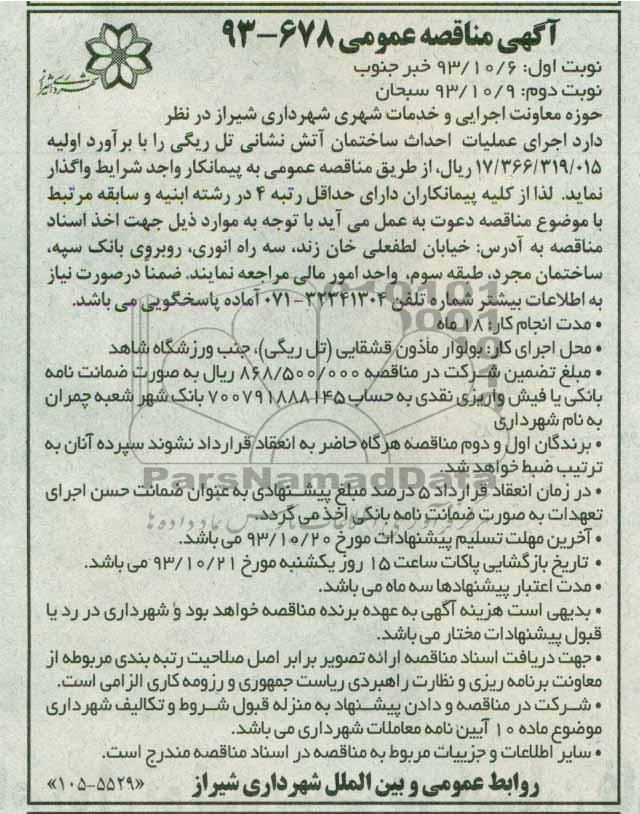 آگهی مناقصه عمومی ۶۷۸-۹۳
نوبت اول: ۹۳/۱۰/۶ خبر جنوب
نوبت دوم: ۹۳/۱۰/۹ سبحان
حوزه معاونت اجرایی و خدمات شهری شهرداری شیراز در نظر
دارد اجرای عملیات احداث ساختمان آتش نشانی تل ریگی را با برآورد اولیه
۱۷/۳۶۶/۳۱۹/۰۱۵ ریال، از طریق مناقصه عمومی به پیمانکار واجد شرایط واگذار
نماید. لذا از کلیه پیمانکاران دارای حداقل رتبه ۴ در رشته ابنیه و سابقه مرتبط
با موضوع مناقصه دعوت به عمل می آید با توجه به موارد ذیل جهت اخذ اسناد
مناقصه به آدرس: خیابان لطفعلی خان زند، سه راه انوری، روبروی بانک سپه،
ساختمان مجرد، طبقه سوم، واحد امور مالی مراجعه نمایند. ضمنا درصورت نیاز
به اطلاعات بیشتر شماره تلفن ۳۲۳۴۱۳۰۴-۰۷۱ آماده پاسخگویی می باشد.
• مدت انجام کار: ۱۸ ماه
• محل اجرای کار: بولوار مأذون قشقایی (تل ریگی)، جنب ورزشگاه شاهد
• مبلغ تضمین شرکت در مناقصه ۸۶۸/۵۰۰/۰۰۰ ریال به صورت ضمانت نامه
بانکی یا فیش واریزی نقدی به حساب ۷۰۰۷۹۱۸۸۸۱۴۵ بانک شهر شعبه چمران
به نام شهرداری
• برندگان اول و دوم مناقصه هرگاه حاضر به انعقاد قرارداد نشوند سپرده آنان به
ترتیب ضبط خواهد شد.
• در زمان انعقاد قرارداد ۵ درصد مبلغ پیشنهادی به عنوان ضمانت حسن اجرای
تعهدات به صورت ضمانت نامه بانکی اخذ می گردد.
• آخرین مهلت تسلیم پیشنهادات مورخ ۹۳/۱۰/۲۰ می باشد.
• تاریخ بازگشایی پاکات ساعت ۱۵ روز یکشنبه مورخ ۹۳/۱۰/۲۱ می باشد.
• مدت اعتبار پیشنهادها سه ماه می باشد.
• بدیهی است هزینه آگهی به عهده برنده مناقصه خواهد بود و شهرداری در رد یا
قبول پیشنهادات مختار می باشد.
• جهت دریافت اسناد مناقصه ارائه تصویر برابر اصل صلاحیت رتبه بندی مربوطه از
معاونت برنامه ریزی و نظارت راهبردی ریاست جمهوری و رزومه کاری الزامی است.
• شرکت در مناقصه و دادن پیشنهاد به منزله قبول شروط و تکالیف شهرداری
موضوع ماده ۱۰ آیین نامه معاملات شهرداری می باشد.
• سایر اطلاعات و جزییات مربوط به مناقصه در اسناد مناقصه مندرج است.
روابط عمومی و بین الملل شهرداری شیراز
«۱۰۵-۵۵۲۹»
شهرداری شیراز
ParsNamadData